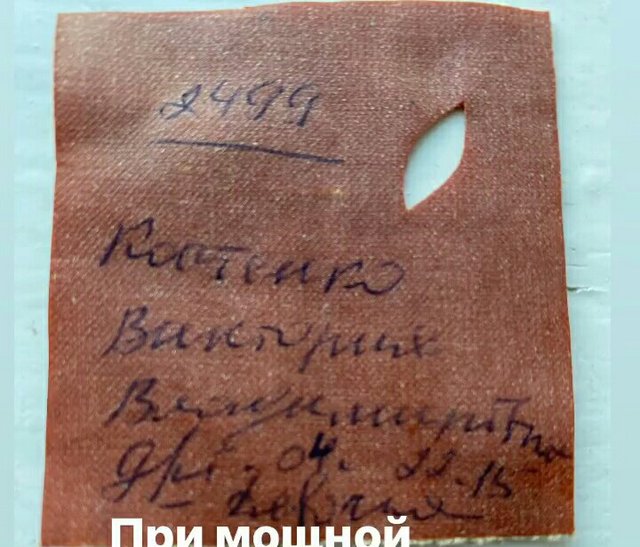 2499
Костенко
Виктория
Владимировна
04. 22-15
девочка
При мощной